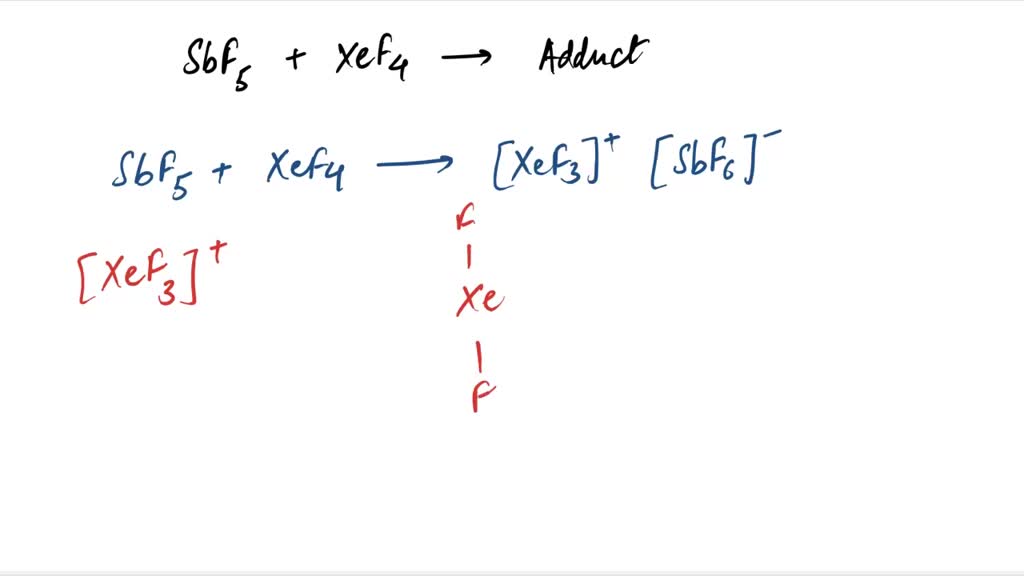 SbF₅ + XeF₄ → Adduct
SbF₅ + XeF₄ → [XeF₃]⁺ [SbF₆]⁻
[XeF₃]⁺
F
|
Xe
|
F